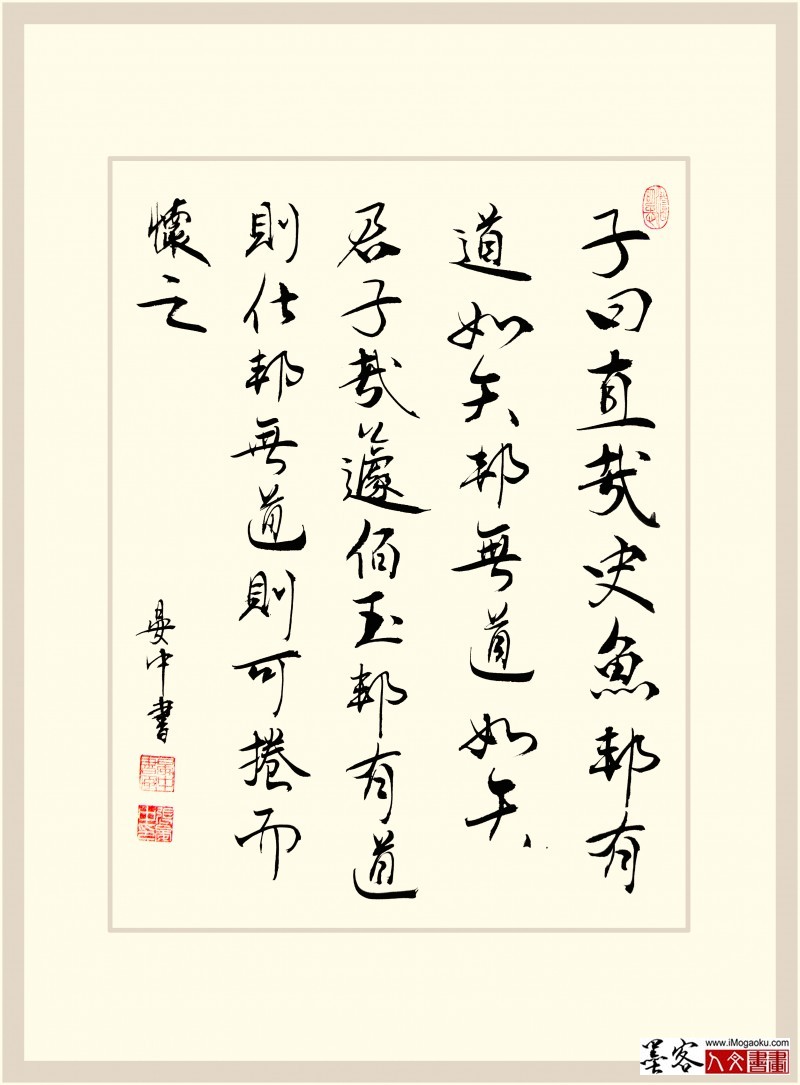 子曰直哉史魚邦有
道如矢邦無道如矢
君子哉蘧伯玉邦有道
則仕邦無道則可捲而
懷之
晏中書
www.iMogaoku.com
墨客
人文書畫